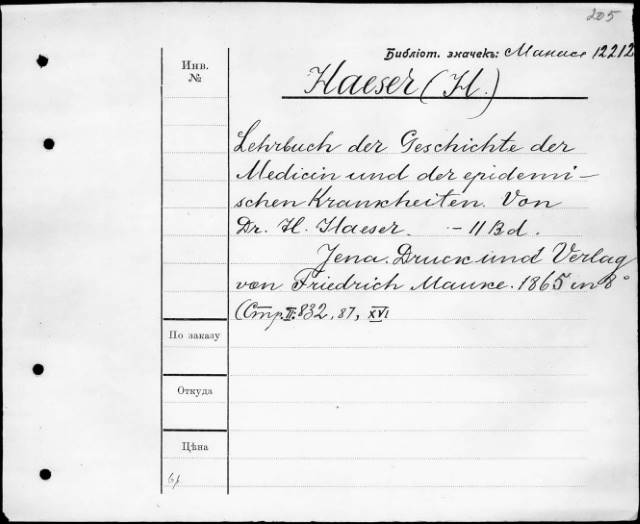 205
Библіот. значекъ: Манасе 12212
Инв.
№
Haeser (H.)
Lehrbuch der Geschichte der
Medicin und der epidemi-
schen Krankheiten. Von
Dr. H. Haeser. - II Bd.
Jena. Druck und Verlag
von Friedrich Mauke. 1865 in 8°
(Стр. II. 832, 87, XVI
По заказу
Откуда
Цѣна